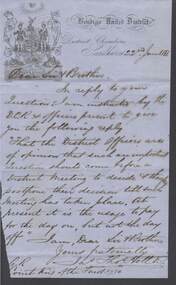 Bendigo United District
District Chambers
22nd June 18
Dear Sir & Brother
In reply to your
questions I am instructed by the
D.C.R. & officers present to give
you the following reply
"That the District Officers are
of opinion that such an important
question should come before a
District Meeting to decide & they
postpone their decision till such
Meeting has taken place. At
present it is the usage to pay
for the day on, but not the day
off" I am, Dear Sir & Brother
Yours